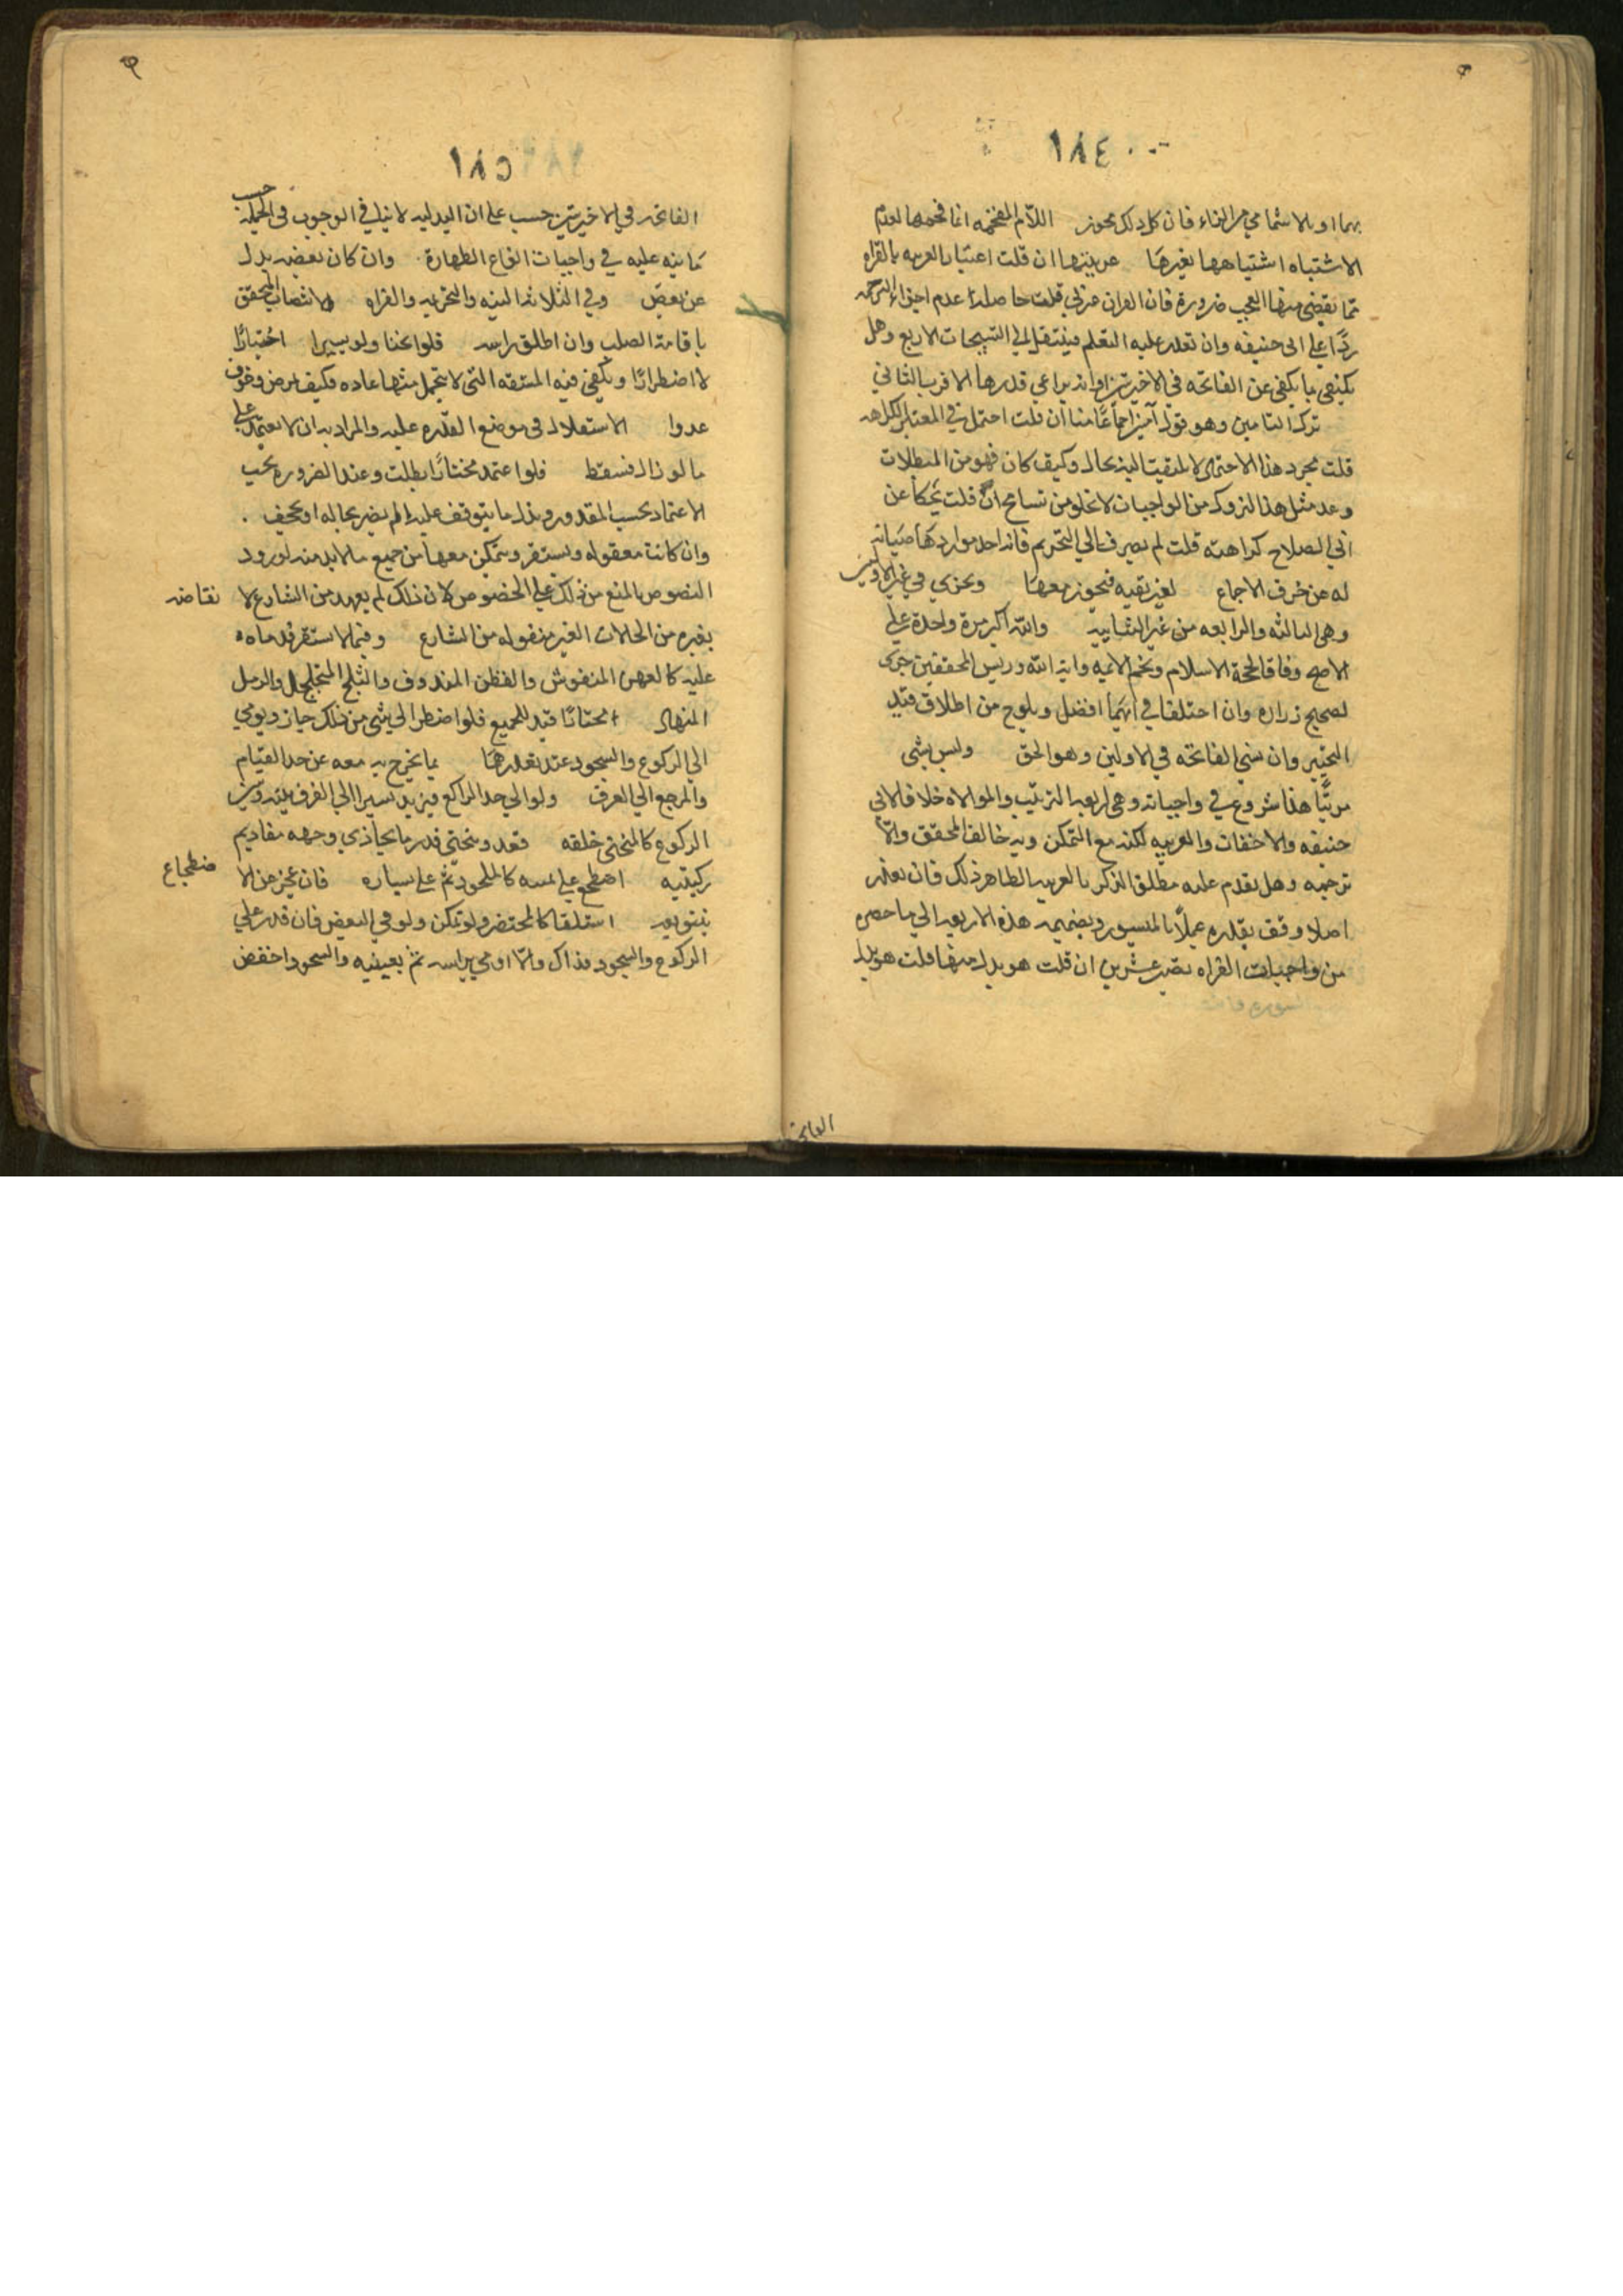 ١٨٤
بهما او بالاشمام من الراء فان كل ذلك يجوز اللام المفخمه انما فخمها لعدم
الاشتباه اشتباهها بغيرها عربيتها ان قلت اعتبار العربيه بالقراه
مما يقضي منها العجب ضرورة فان القران عربي قلت حاصله عدم اجزاء الترجمه
ردا على ابي حنيفه وان تعذر عليه التعلم فينتقل الي التسبيحات الاربع وهل
يكتفي بما يكفي عن الفاتحه في الاخيرتين او انه يراعي قدرها الاقرب الثاني
ترك التامين وهو قول آمين اجماعا منا ان قلت احتمل في المعتبر الكراهه
قلت مجرد هذا الاحتمال لا يلتفت اليه بحال وكيف كان فهو من المبطلات
وعد مثل هذا التروك من الواجبات لا تخلو من تسامح ان قلت يحكا عن
ابي الصلاح كراهته قلت لم يصرف الي التحريم فانه احد مواردها صيانه
له من خرق الاجماع لغير تقيه فيجوز معها ويجزي في غير الاوليين
وهي الثالثه والرابعه من غير الثنايه والله اكبر مرة واحدة علي
الاصح وفاقا لحجة الاسلام ونجم الائمه وايه الله ورييس المحققين
لصحيح زراره وان اختلفا في ايهما افضل ويلوح من اطلاق قيد
التخيير وان نسي الفاتحه في الاولين وهو الحق وليس بشي
مرتبا هذا شروع في واجباته وهي اربعه الترتيب والموالاه خلافا لابي
حنيفه والاخفات والعربيه لكنه مع التمكن وبه خالف المحقق والا
ترجمه وهل يقدم عليه مطلق الذكر بالعربيه الظاهر ذلك فان تعذر
اصلا وقف بقدره عملا بالميسور وبضميمه هذه الاربعه الي ما حصره
من واجبات القراه تصير عشرين ان قلت هو بدل منها قلت هو بدل
الفاتحه
١٨٥
الفاتحه في الاخيرتين حسب على ان البدليه لا تنافي الوجوب في الجمله حسب
ما نبه عليه في واجبات انواع الطهارة وان كان بعضه بدل
عن بعض وفي الثلاثه النيه والتحريمه والقراه والانتصاب المحقق
باقامة الصلب وان اطلق راسه فلو انحنا ولو يسيرا اختيارا
لا اضطرارا ويكفي فيه المشقه التي لا يتحمل مثلها عاده فكيف لمرض وخوف
عدوا الاستقلال في موضع القدره عليه والمراد به ان لا يعتمد علي
ما لو زال لسقط فلو اعتمد مختارا بطلت وعند الضروره يجب
الاعتماد بحسب المقدور وبذل ما يتوقف عليه ما لم يضر بحاله او يجحف
وان كانت معقوله ويستقر ويتمكن معها من جميع ما لا بد منه لورود
النصوص بالمنع من ذلك علي الخصوص لان ذلك لم يعهد من الشارع لا نقاضه
بغيره من الحالات الغير منقوله من الشارع وفيما لا يستقر قدماه
عليه كالعهن المنفوش والقطن المندوف والثلج المتجلجل والرمل
المنهال اختارا قيد للجميع فلو اضطر الي شي من ذلك جاز ويومي
الي الركوع والسجود عند تعذرها بما يخرج به معه عن حد القيام
والمرجع الي العرف ولو الي حد الراكع فيزيد يسيرا الي الفرق بينه وبين
الركوع كالمنحني خلقه قعد وينحني قدر ما يحاذي وجهه مقاديم
ركبتيه اضطجع علي يمينه كالملحود ثم علي يساره فان عجز عن الا ضطجاع
استلقا كالمحتضر ولو تمكن ولو في البعض فان قدر علي
الركوع والسجود فذاك والا اومي براسه ثم بعينيه والسجود اخفض